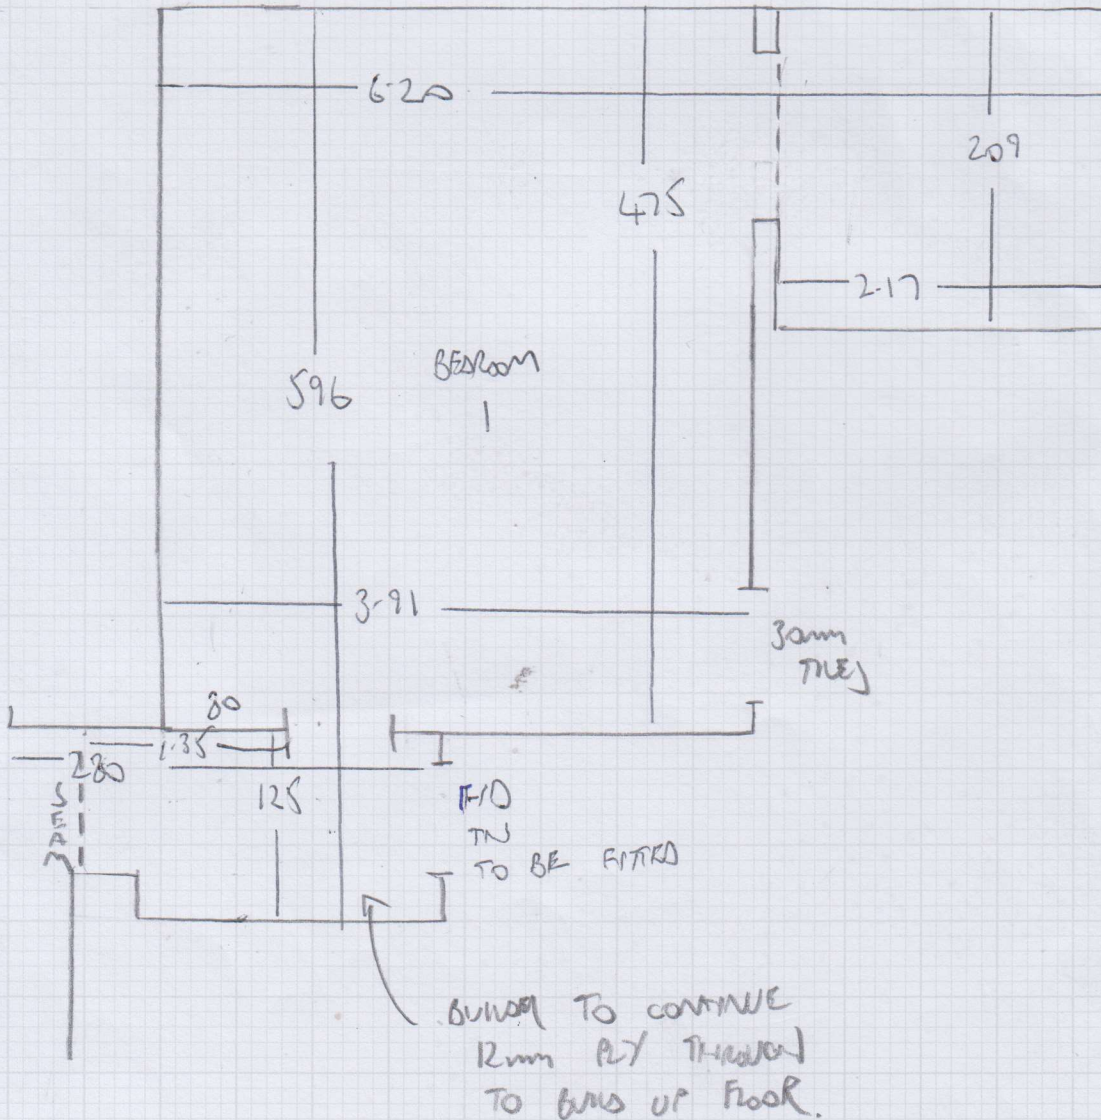 6-20
209
475
2-17
BEDROOM
1
596
3-91
30mm
TILES
80
1.35
280
SEAM
125
F/D
TO BE FITTED
BUILDER TO CONTINUE
12mm PLY THROUGH
TO BUILD UP FLOOR.